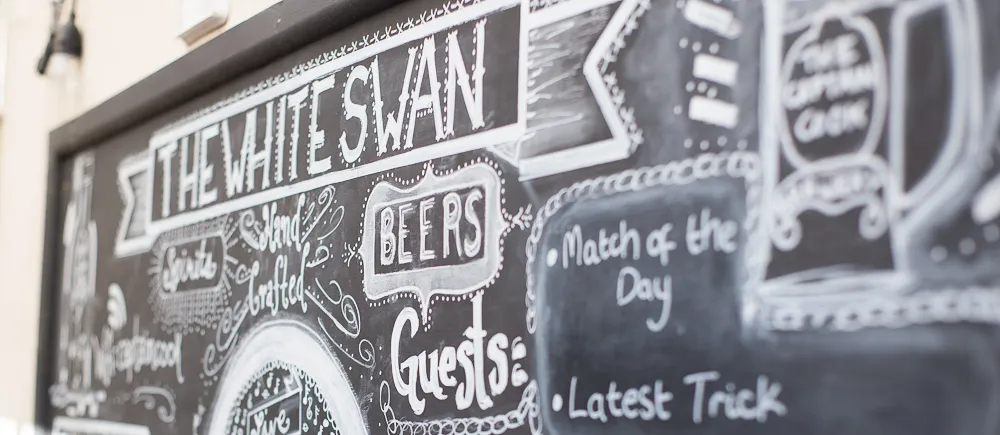 THE WHITE SWAN
Spirits
Hand
Crafted
BEERS
Guests:
Live
THE
CAPTAIN
COOK
• Match of the
Day
• Latest Trick